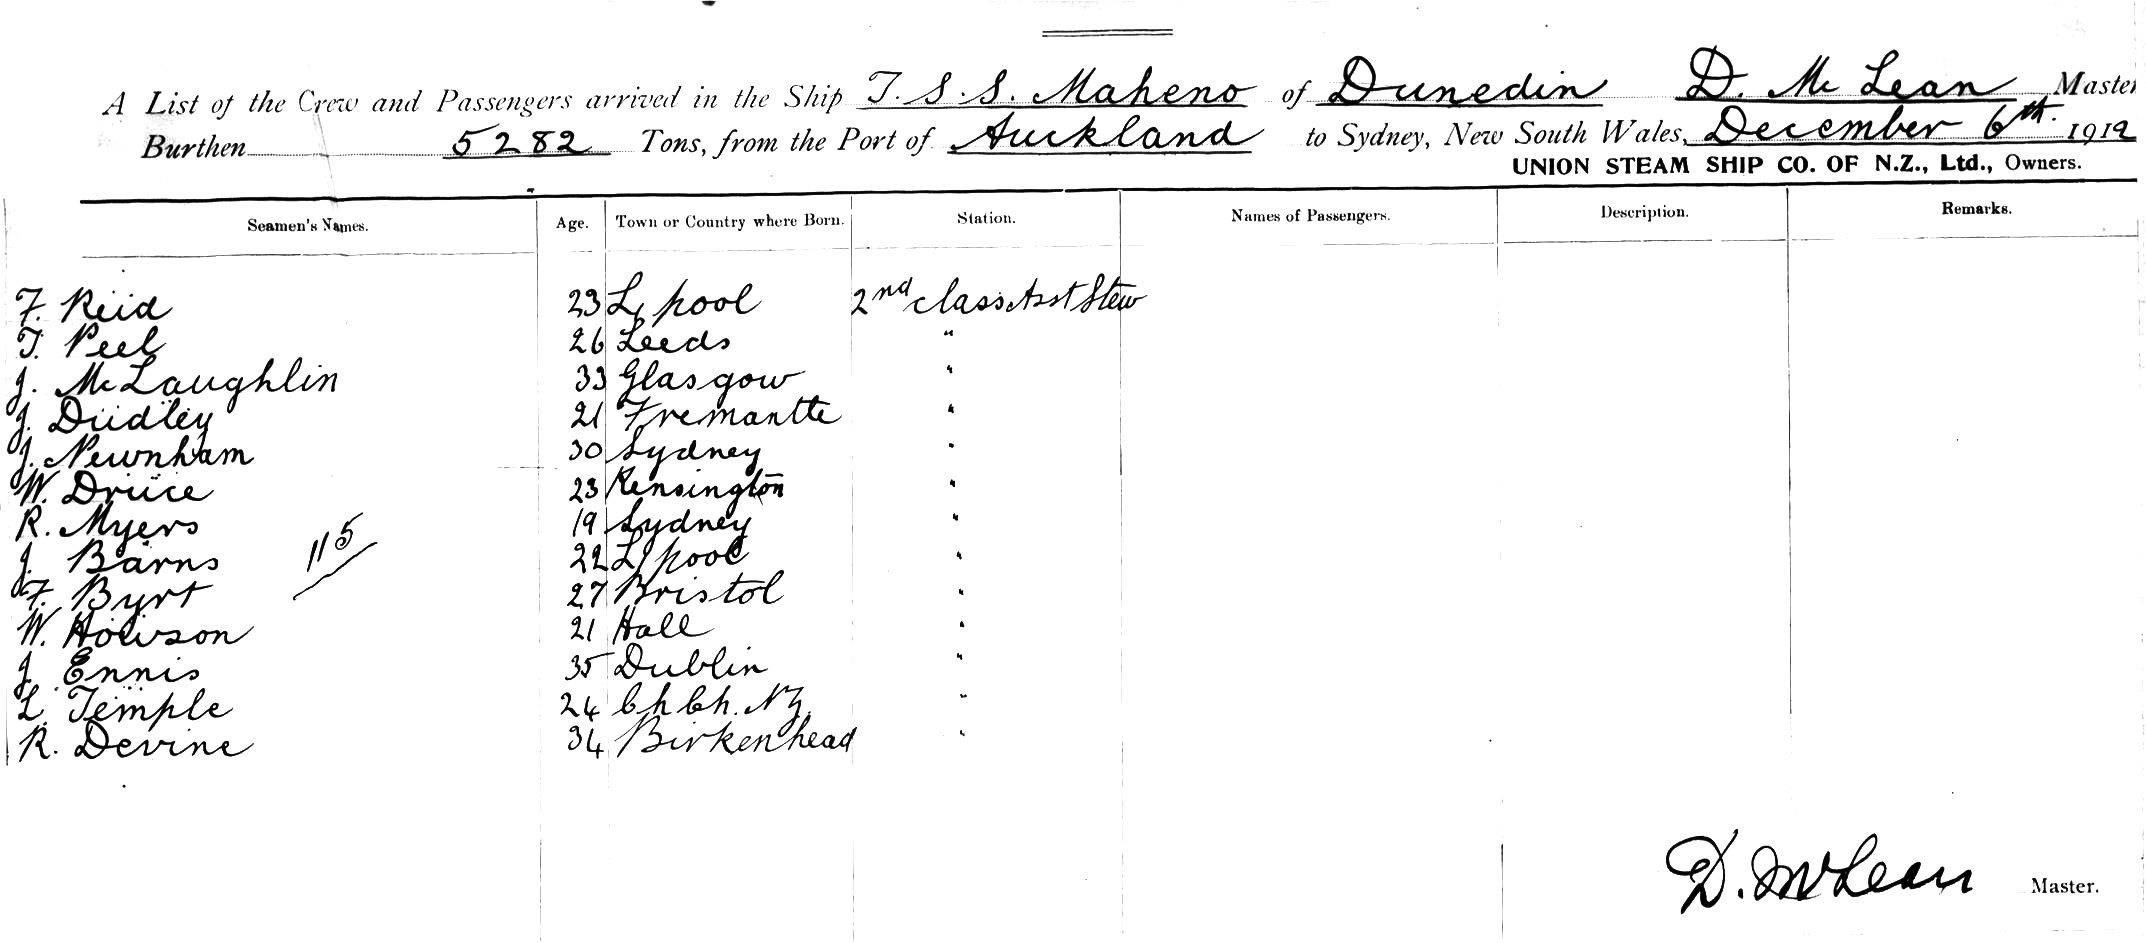 A List of the Crew and Passengers arrived in the Ship T. S. S. Maheno of Dunedin D. McLean Master
Burthen 5282 Tons, from the Port of Auckland to Sydney, New South Wales, December 6th. 1912
UNION STEAM SHIP CO. OF N.Z., Ltd., Owners.
Seamen's Names. Age. Town or Country where Born. Station. Names of Passengers. Description. Remarks.
F. Reid 23 L'pool 2nd class Asst Stew
T. Peel 26 Leeds "
J. McLaughlin 33 Glasgow "
J. Dudley 21 Fremantle "
J. Newnham 30 Sydney "
W. Druce 23 Kensington "
R. Myers 19 Sydney "
J. Barns 22 L'pool "
115
F. Byrt 27 Bristol "
W. Howson 21 Hall "
J. Ennis 35 Dublin "
L. Temple 24 Ch Ch. NZ. "
R. Devine 34 Birkenhead "
D. McLean Master.